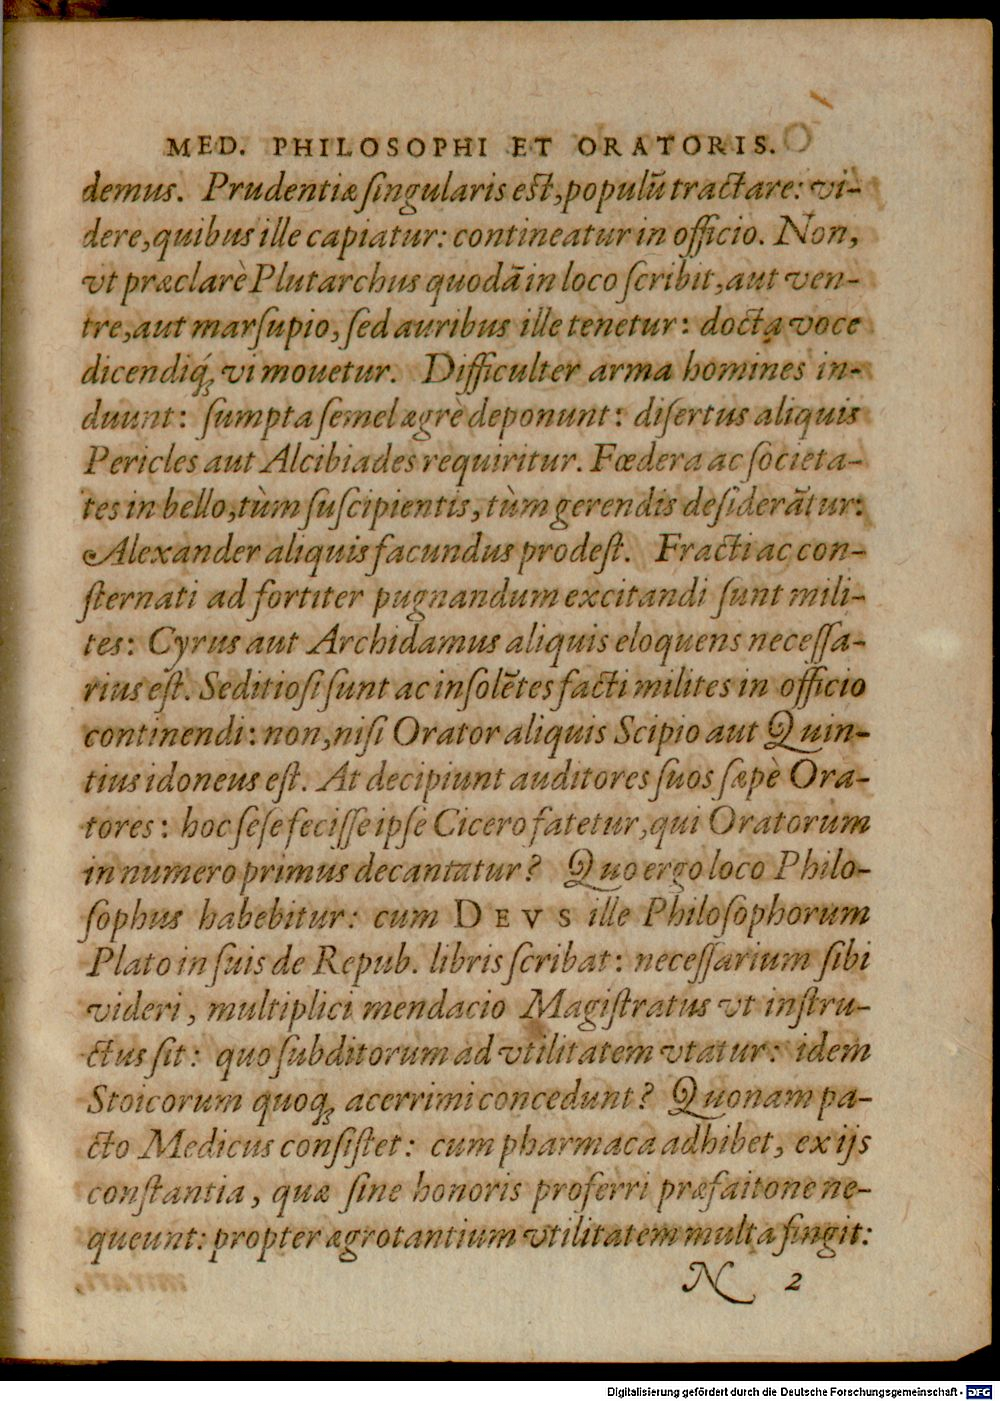 MED. PHILOSOPHI ET ORATORIS.
demus. Prudentiæ ſingularis eſt, populū tractare: vi-
dere, quibus ille capiatur: contineatur in officio. Non,
vt præclarè Plutarchus quodā in loco ſcribit, aut ven-
tre, aut marſupio, ſed auribus ille tenetur: docta voce
dicendiq́ꝫ vi mouetur. Difficulter arma homines in-
duunt: ſumpta ſemel ægrè deponunt: diſertus aliquis
Pericles aut Alcibiades requiritur. Fœdera ac ſocieta-
tes in bello, tùm ſuſcipientis, tùm gerendis deſiderātur:
Alexander aliquis facundus prodeſt. Fracti ac con-
ſternati ad fortiter pugnandum excitandi ſunt mili-
tes: Cyrus aut Archidamus aliquis eloquens neceſſa-
rius eſt. Seditioſi ſunt ac inſolētes facti milites in officio
continendi: non, niſi Orator aliquis Scipio aut Quin-
tius idoneus eſt. At decipiunt auditores ſuos ſæpè Ora-
tores: hoc ſeſe feciſſe ipſe Cicero fatetur, qui Oratorum
in numero primus decantatur? Quo ergo loco Philo-
ſophus habebitur: cum DEVS ille Philoſophorum
Plato in ſuis de Repub. libris ſcribat: neceſſarium ſibi
videri, multiplici mendacio Magiſtratus vt inſtru-
ctus ſit: quo ſubditorum ad vtilitatem vtatur: idem
Stoicorum quoqꝫ acerrimi concedunt? Quonam pa-
cto Medicus conſiſtet: cum pharmaca adhibet, ex ijs
conſtantia, quæ ſine honoris proferri præfaitone ne-
queunt: propter ægrotantium vtilitatem multa fingit:
N 2
Digitalisierung gefördert durch die Deutsche Forschungsgemeinschaft - DFG